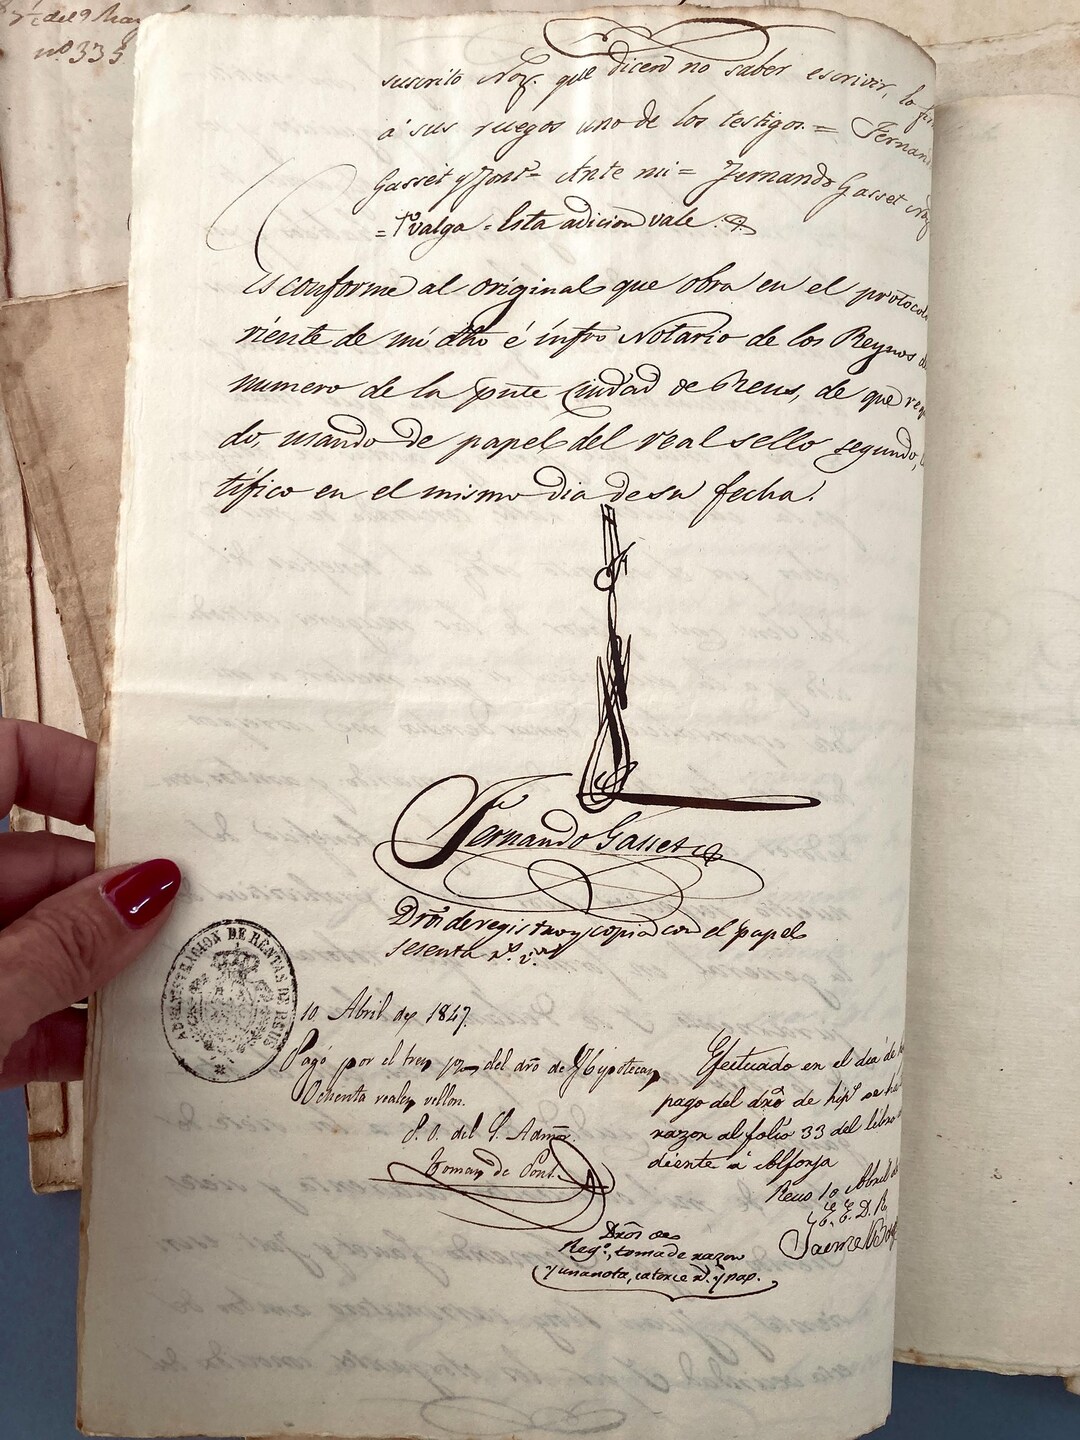 del 9 May
nº 335
suscrito Noț. que dicen no saber escrivir, lo fir
á sus ruegos uno de los testigos. = Fernan
Gasset y = Ante mi = Fernando Gasset
= valga = Esta adicion vale.
Es conforme al original que obra en el protocolo
riente de mi dho é infro Notario de los Reynos de
numero de la pnte Ciudad de Reus, de que req
do, usando de papel del real sello segundo,
tifico en el mismo dia de su fecha.
Fernando Gasset
Dros de registro y copia con el papel
sesenta rs. vn
ADMINISTRACION DE RENTAS DE REUS
10 Abril de 1847.
Pagó por el tres p% del dro de Hypotecas
Ochenta reales vellon.
P. O. del S. Admor.
Tomas de Pont
Efectuado en el dia de
pago del dro de hips se ha
razon al folio 33 del libro
diente á Alforja
Reus 10 Abril de
E. E. D. R.
Jaime
Dros de
Rego, toma de razon
y una nota, catorce rs. y pap.